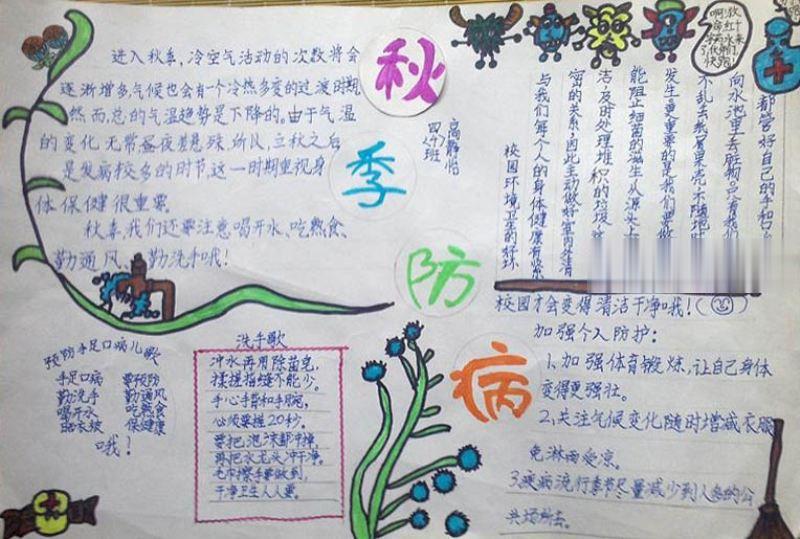 秋
季
防
病
进入秋季,冷空气活动的次数将会
逐渐增多,气候也会有一个冷热多变的过渡时期,
然而,总的气温趋势是下降的。由于气温
的变化无常昼夜悬殊,所以,立秋之后
是发病较多的时节,这一时期重视身
体保健很重要。
秋季,我们还要注意喝开水、吃熟食、
勤通风、勤洗手哦!
四(4)班
都管好自己的手和口
向水池里丢脏物,只有我们
不乱丢纸屑果壳,不随地
发生最重要的是我们要做
能阻止细菌的滋生从源头上
洁,及时处理堆积的垃圾,
密的关系,因此主动做好室内外清
与我们每个人的身体健康有紧
校园环境卫生的好坏
校园才会变得清洁干净哦!
加强个人防护:
1、加强体育锻炼,让自己身体
变得更强壮。
2、关注气候变化随时增减衣服
免淋雨受凉。
3、疾病流行季节尽量减少到人多的公
共场所去。
预防手足口病儿歌
手足口病 要预防
勤洗手 勤通风
喝开水 吃熟食
晒衣被 保健康
哦!
洗手歌
冲水再用除菌皂,
揉搓指缝不能少。
手心手背和手腕,
必须要搓20秒。
要把泡沫都冲掉,
再把水龙头冲干净。
毛巾擦手要做到,
干净卫生人人要。